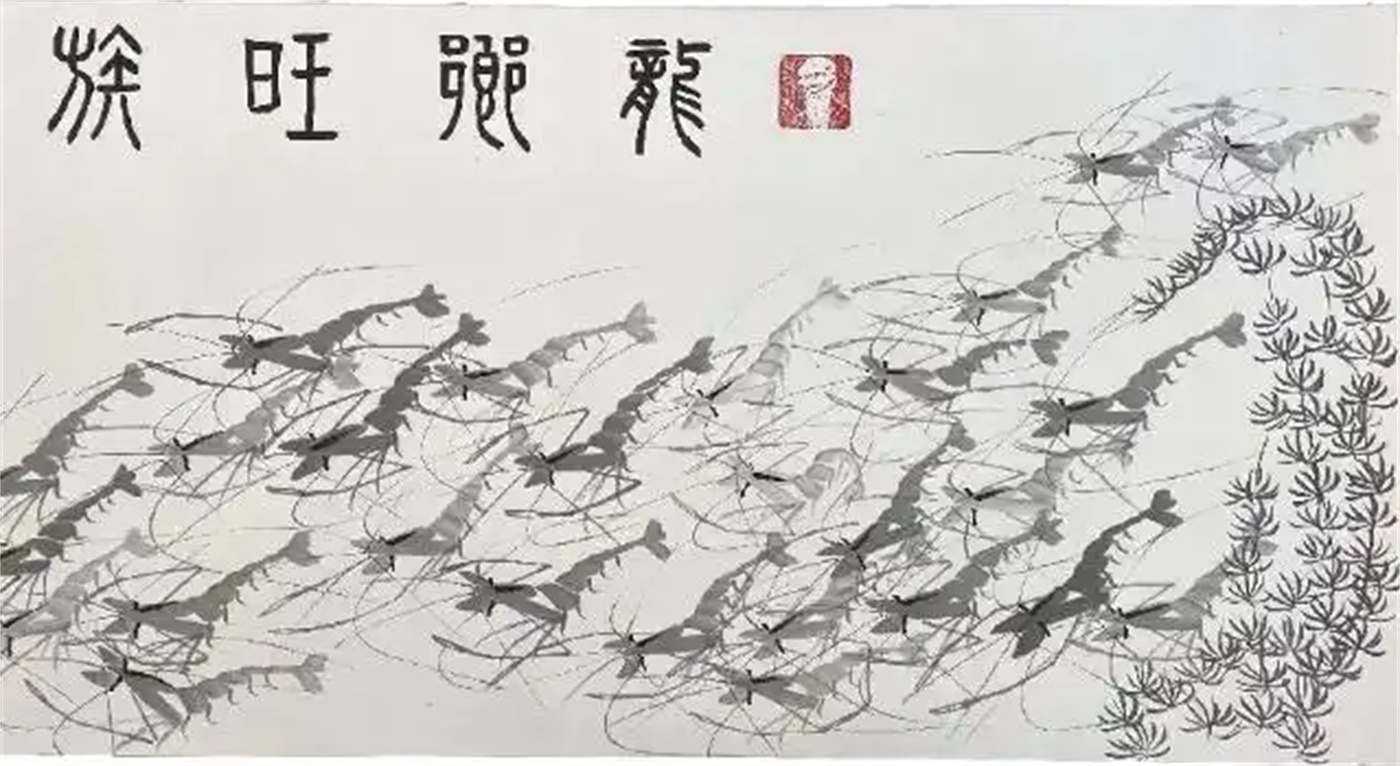 龍鄉旺族